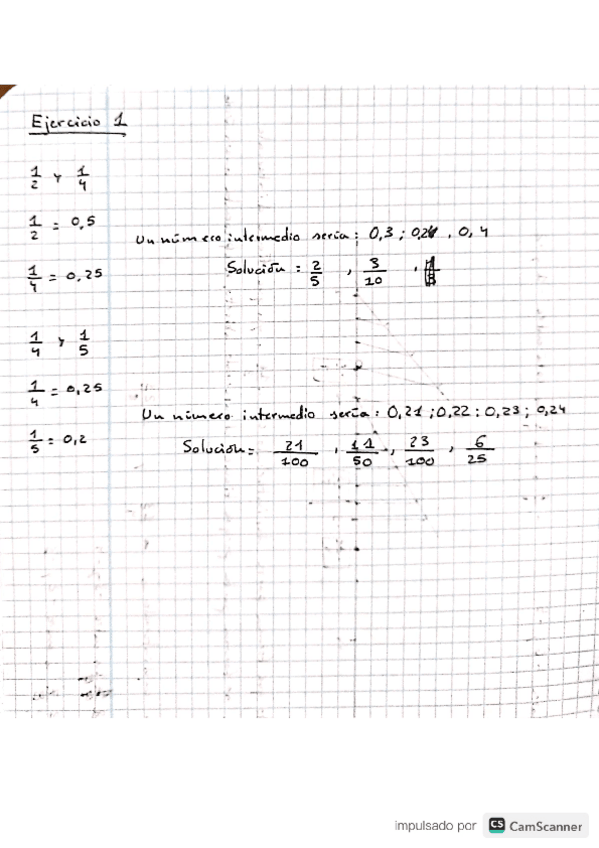 Ejercicio 1
1/2 y 1/4
1/2 = 0,5
Un número intermedio sería: 0,3 ; , 0,4
1/4 = 0,25
Solución: 2/5 , 3/10 ,
1/4 y 1/5
1/4 = 0,25
Un número intermedio sería: 0,21 ; 0,22 ; 0,23 ; 0,24
1/5 = 0,2
Solución = 21/100 , 11/50 , 23/100 , 6/25
impulsado por CS CamScanner